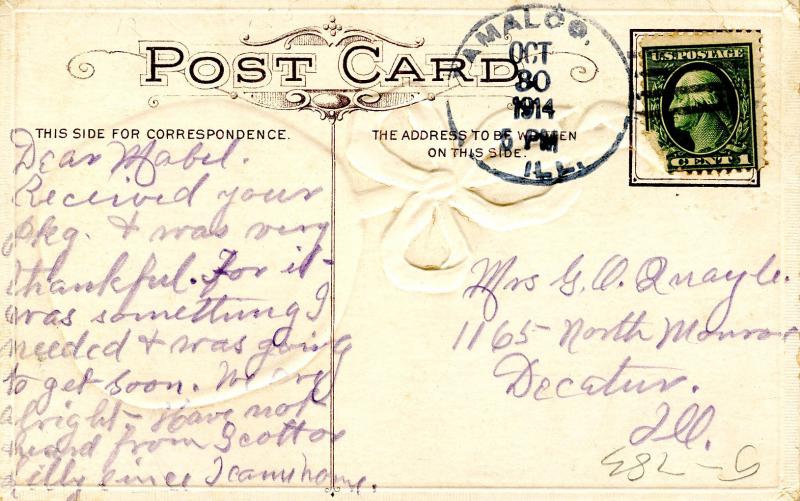 POST CARD
THIS SIDE FOR CORRESPONDENCE.
THE ADDRESS TO BE WRITTEN
ON THIS SIDE.
TAMALCO,
OCT
30
1914
6 PM
ILL.
U.S. POSTAGE
1 CENT 1
Dear Mabel.
Received your
pkg. & was very
thankful. For it
was something I
needed & was going
to get soon. We are
alright. Have not
heard from Scott or
since I came home.
Mrs G. O. Quayle.
1165 North Monroe
Decatur.
Ill.